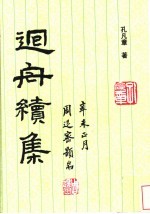 孔凡章 著
辛未正月
周退密題
迴舟續集